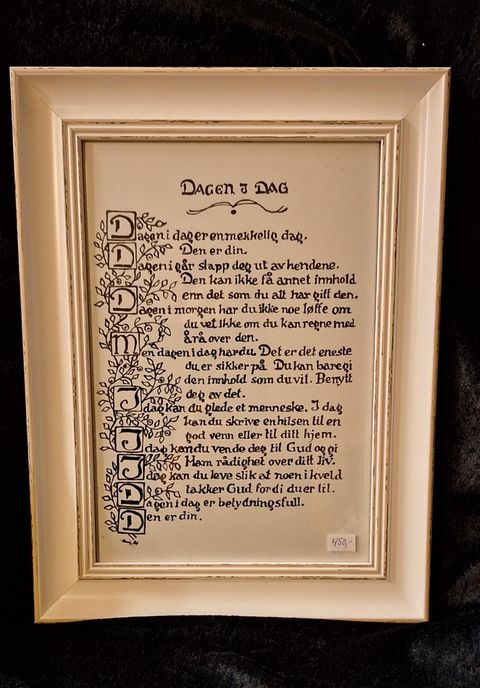 DAGEN I DAG
Dagen i dag er en merkelig dag.
Den er din.
Dagen i går slapp deg ut av hendene.
Den kan ikke få annet innhold
enn det som du alt har gitt den.
Dagen i morgen har du ikke noe løfte om
du vet ikke om du kan regne med
å rå over den.
Men dagen i dag har du. Det er det eneste
du er sikker på. Du kan bare gi
den innhold som du vil. Benytt
deg av det.
I dag kan du glede et menneske. I dag
kan du skrive en hilsen til en
god venn eller til ditt hjem.
I dag kan du vende deg til Gud og gi
Ham rådighet over ditt liv.
I dag kan du leve slik at noen i kveld
takker Gud fordi du er til.
Dagen i dag er betydningsfull.
Den er din.
450,-